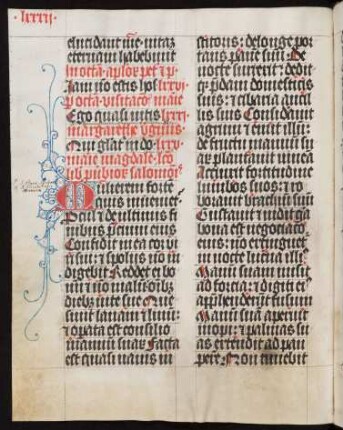 lxxxij
elucidant me · vitaz
eternam habebunt
In octa · aplor pet et p
Iam nō estis hos lxxvj
Octa visitacōis marie
Ego quasi vitis lxxxj
margarethe vginis
Qui gl̄at in do · lxxv
marie magdale · lcō
lib sapie salomonis
Mulierem fortē
quis inueniet
Procul et de vltimis fi
nibus p̄cium eius
Confidit in ea cor vi
ri sui : et spolijs nō in
digebit Reddet ei bo
nū et nō malū oībz
diebz vite sue Que
siuit lanam et linū :
et opata est consilio
manuū suar Facta
est quasi nauis in
stitoris : de longe por
tans panē suū De
nocte surrexit : dedit
qz p̄dam domesticis
suis : et cibaria ancil
lis suis Considerauit
agrum et emit illū :
de fructu manuū su
ar plantauit vineā
Accinxit fortitudine
lumbos suos : et ro
borauit brachiū suū
Gustauit et vidit qa
bona est negociatō
eius : nō extinguet
in nocte lucerna illiꝰ
Manū suam misit
ad fortia : et digiti eiꝰ
apphenderūt fusum
Manū suā aperuit
inopi : et palmas su
as extendit ad pau
perē Non timebit